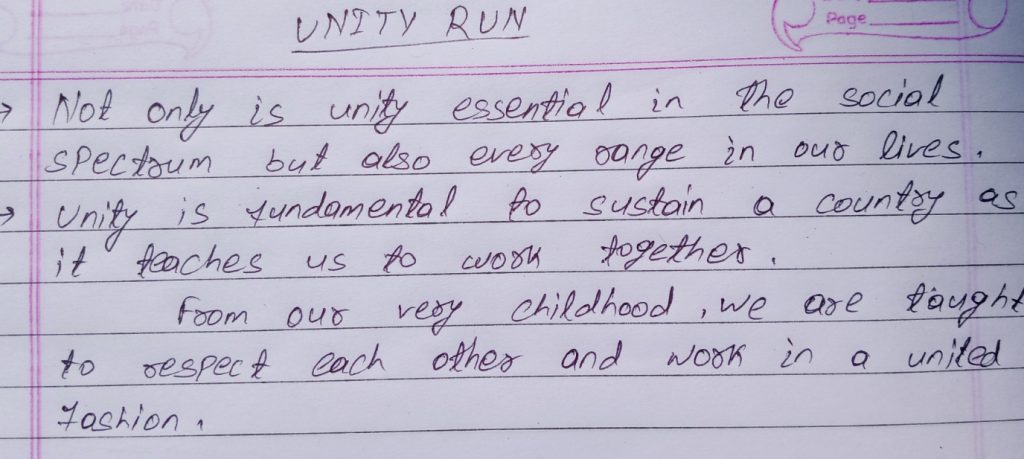 UNITY RUN
Page
→ Not only is unity essential in the social
spectrum but also every range in our lives.
→ Unity is fundamental to sustain a country as
it teaches us to work together.
From our very childhood, we are taught
to respect each other and work in a united
fashion.